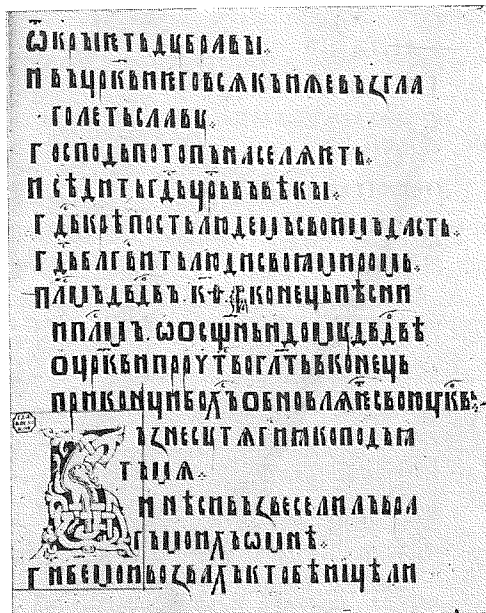 ѿкрыѥтьдꙋбравы.
ивъцрк҃виѥговсѧкъижевъзгла
голетьславꙋ
господьпотопънаселѧѥть
исѣдитьг҃дьцр҃ьвъвѣкы.
г҃дькрѣпостьлюдемъсвоимъдасть
г҃дьблг҃витьлюдисвоꙗмиромь.
п҃лмъдв҃двъ. к҃ѳ. конецьпѣсни
ип҃лмъ. ѡосщ҃ньидомꙋдв҃двѣ
оцрк҃випороут҃воглт҃ьвконець
приконцибох҃ъобновлѧѥсвоюцк҃вь
възнесꙋтѧг҃иꙗкоподъꙗ
тъмѧ
инѣсивъзвеселилъвра
гъмоихъѡмнѣ.
г҃ибемоивозвахъктобѣиицѣли